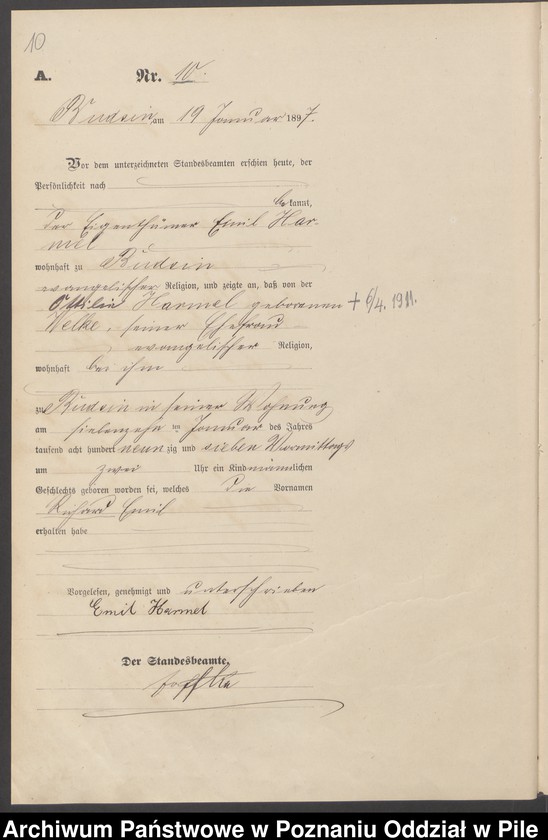 10
A. Nr. 10.
Budsin am 19 Januar 1897.
Vor dem unterzeichneten Standesbeamten erschien heute, der
Persönlichkeit nach
bekannt,
der Eigenthümer Emil Har-
mel
wohnhaft zu Budsin
evangelischer Religion, und zeigte an, daß von der
Ottilie Harmel geborenen + 6/4. 1911.
Welke, seiner Ehefrau
evangelischer Religion,
wohnhaft bei ihm
zu Budsin in seiner Wohnung
am siebenzehn ten Januar des Jahres
tausend acht hundert neunzig und sieben Vormittags
um zwei Uhr ein Kind männlichen
Geschlechts geboren worden sei, welches die Vornamen
Richard Emil
erhalten habe
Vorgelesen, genehmigt und unterschrieben
Emil Harmel
Der Standesbeamte.
Archiwum Państwowe w Poznaniu Oddział w Pile